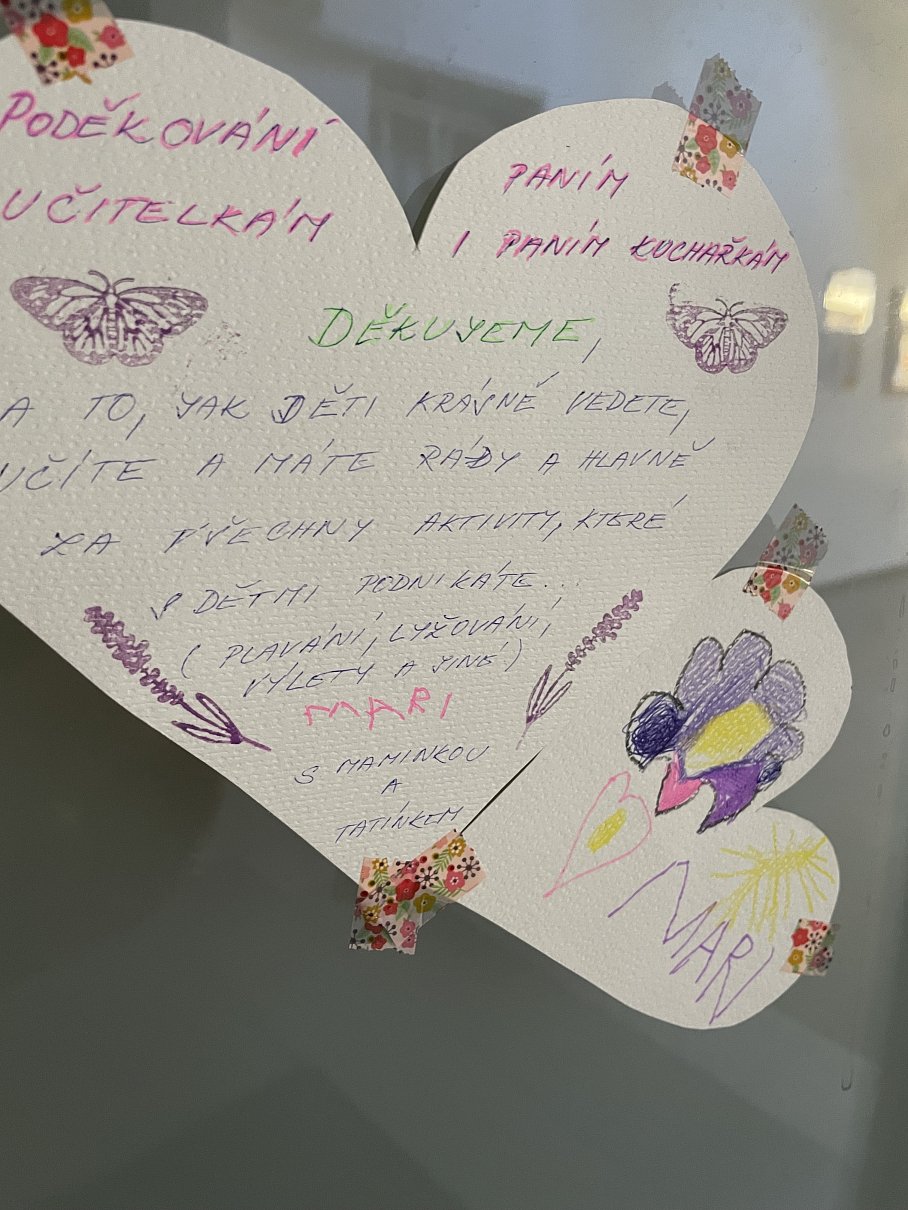 PODĚKOVÁNÍ PANÍM
UČITELKÁM I PANÍM KUCHAŘKÁM
DĚKUJEME,
A TO, JAK DĚTI KRÁSNĚ VEDETE,
UČÍTE A MÁTE RÁDY A HLAVNĚ
ZA VŠECHNY AKTIVITY, KTERÉ
S DĚTMI PODNIKÁTE...
( PLAVÁNÍ, LYŽOVÁNÍ,
VÝLETY A JINÉ )
MARI
S MAMINKOU
A
TATÍNKEM
MARI